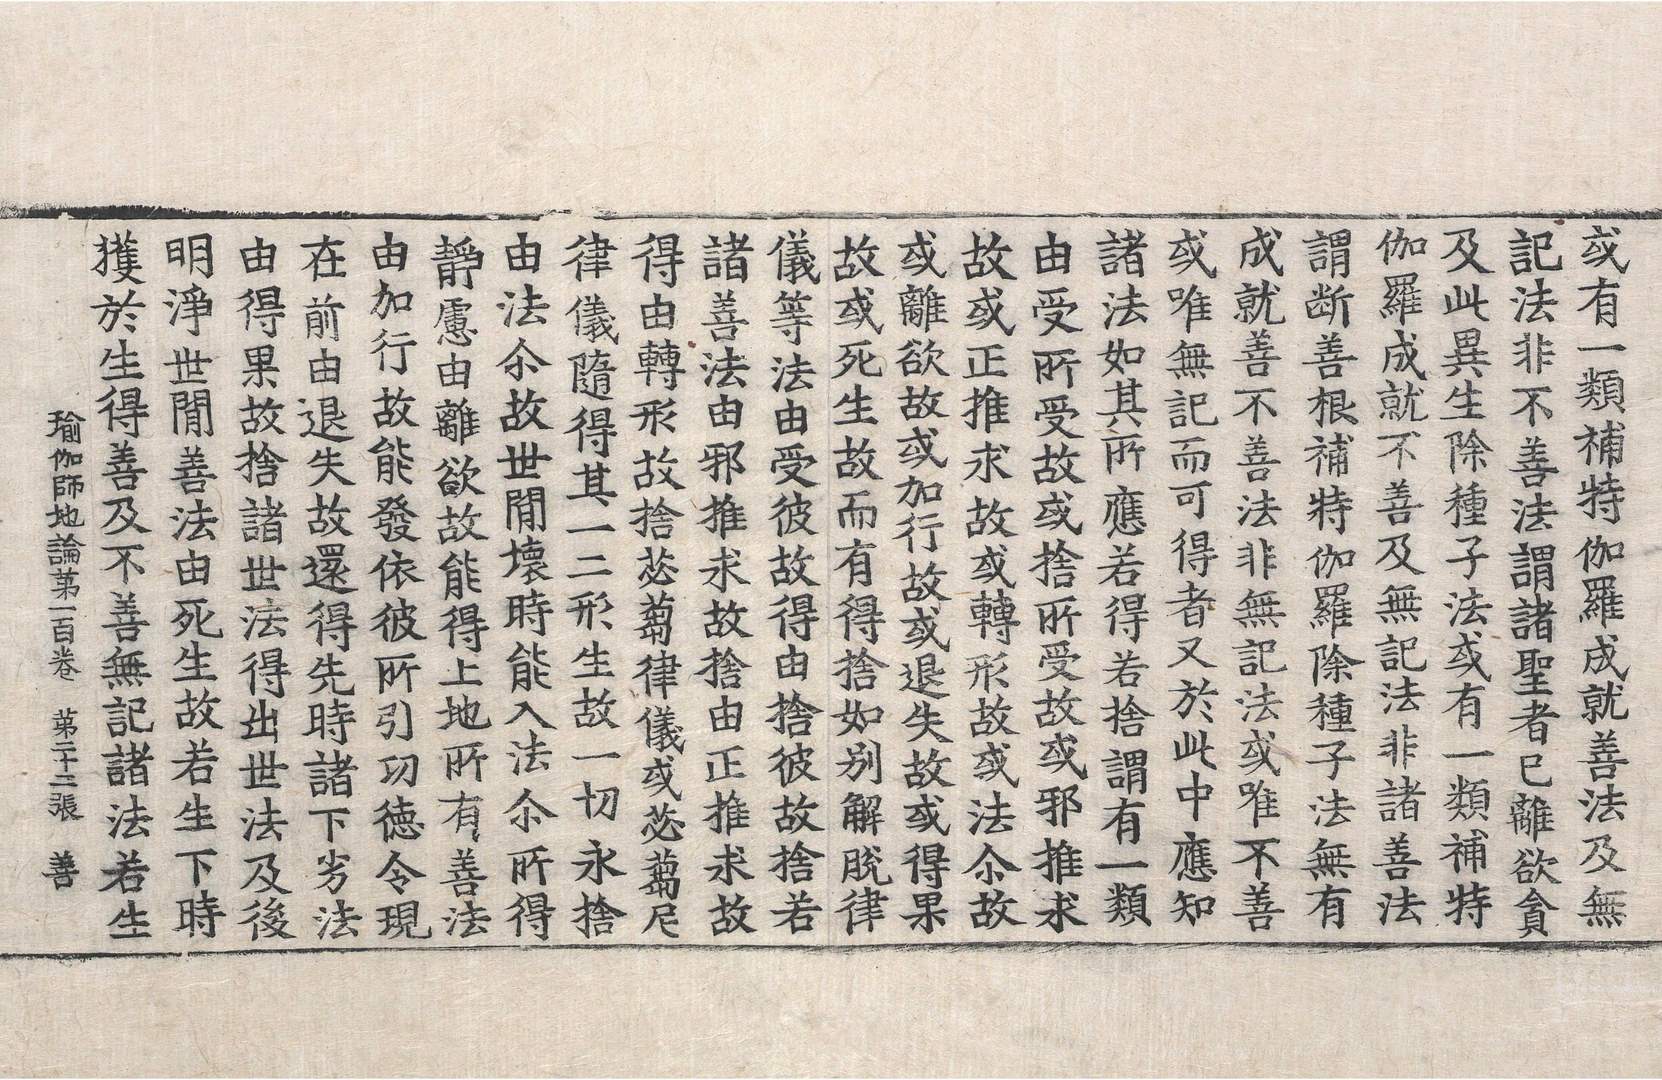 或有一類補特伽羅成就善法及無
記法非不善法謂諸聖者已離欲貪
及此異生除種子法或有一類補特
伽羅成就不善及無記法非諸善法
謂断善根補特伽羅除種子法無有
成就善不善法非無記法或唯不善
或唯無記而可得者又於此中應知
諸法如其所應若得若捨謂有一類
由受所受故或捨所受故或邪推求
故或正推求故或轉形故或法尒故
或離欲故或加行故或退失故或得果
故或死生故而有得捨如别解脫律
儀等法由受彼故得由捨彼故捨若
諸善法由邪推求故捨由正推求故
得由轉形故捨苾蒭律儀或苾蒭尼
律儀隨得其一二形生故一切永捨
由法尒故世間壞時能入法尒所得
靜慮由離欲故能得上地所有善法
由加行故能發依彼所引功德令現
在前由退失故還得先時諸下劣法
由得果故捨諸世法得出世法及後
明淨世間善法由死生故若生下時
獲於生得善及不善無記諸法若生
瑜伽師地論第一百卷 第二十二張 善